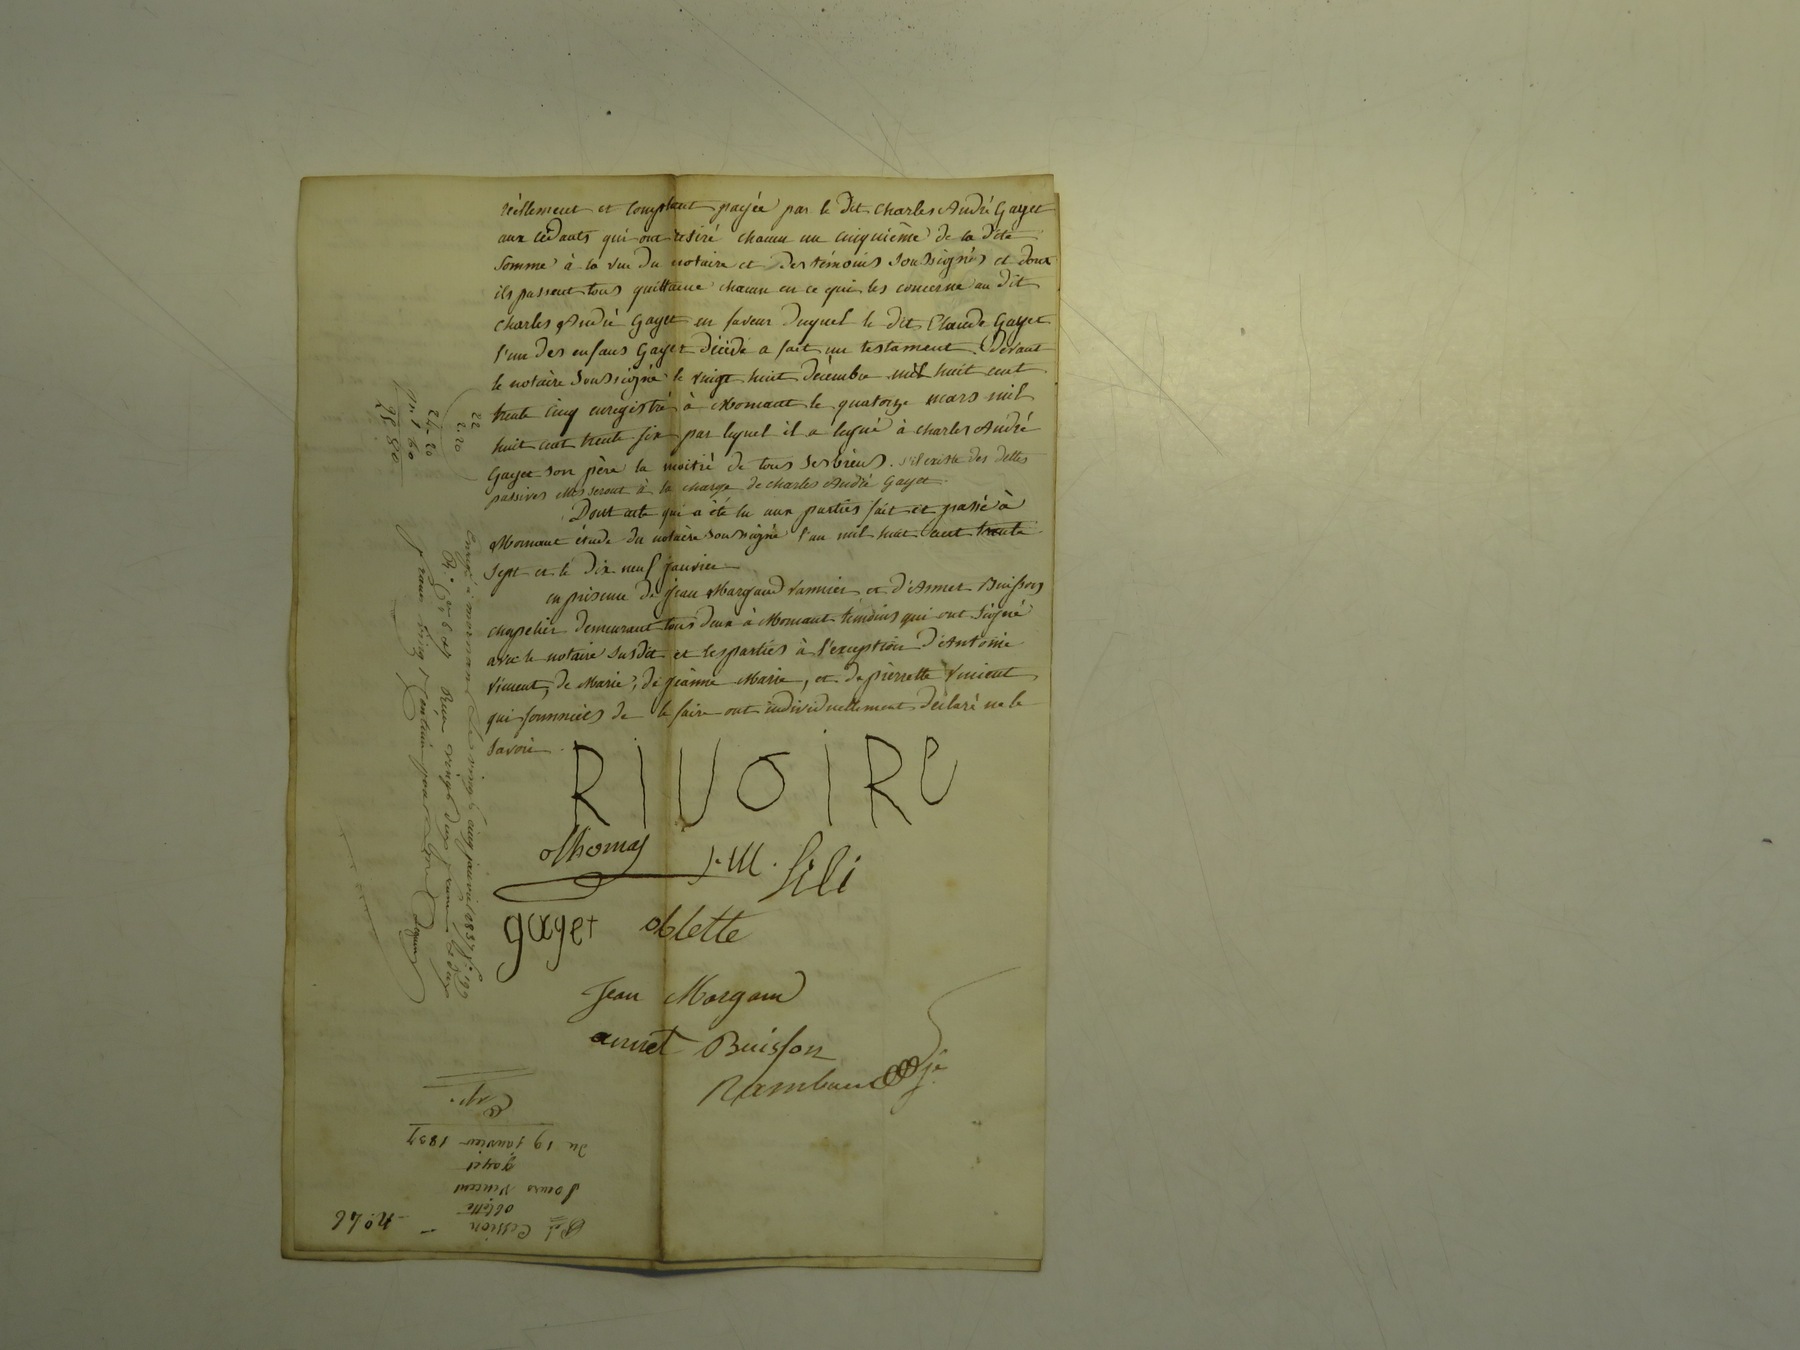 réellement et comptant payée par le dit Charles André Gayet
aux cédants qui ont retiré chacun un cinquième de la dite
somme à la vue du notaire et des témoins soussignés et dont
ils passent tous quittance chacun en ce qui les concerne au dit
Charles André Gayet en faveur duquel le dit Claude Gayet
l'un des enfans Gayet décédé a fait un testament devant
le notaire soussigné le vingt huit décembre mil huit cent
trente cinq enregistré à Mornant le quatorze mars mil
huit cent trente six par lequel il a légué à Charles André
Gayet son père la moitié de tous ses biens. s'il existe des dettes
passives elles seront à la charge de Charles André Gayet.
Dont acte qui a été lu aux parties fait et passé à
Mornant étude du notaire soussigné l'an mil huit cent trente
sept et le dix neuf janvier
en présence de Jean Margand vannier et d'Annet Buisson
chapelier demeurant tous deux à Mornant témoins qui ont signé
avec le notaire susdit et les parties à l'exception d'Antoine
Vincent, de Marie, de Jeanne Marie, et de pierrette Vincent
qui sommés de le faire ont individuellement déclaré ne le
savoir.
RIVOIRe
Thomas
J.M. fili
gayet oblette
Jean Morgand
annet Buisson
Rambaud
22
2.20
24 20
1 60
25 80
Enregé à mornant le vingt cinq janvier 1837 fo 199
Reçu vingt deux francs
franc vingt centimes pour
No 46
Cession
oblette
Soeurs Vincent
gayet
du 19 janvier 1837
Exp.